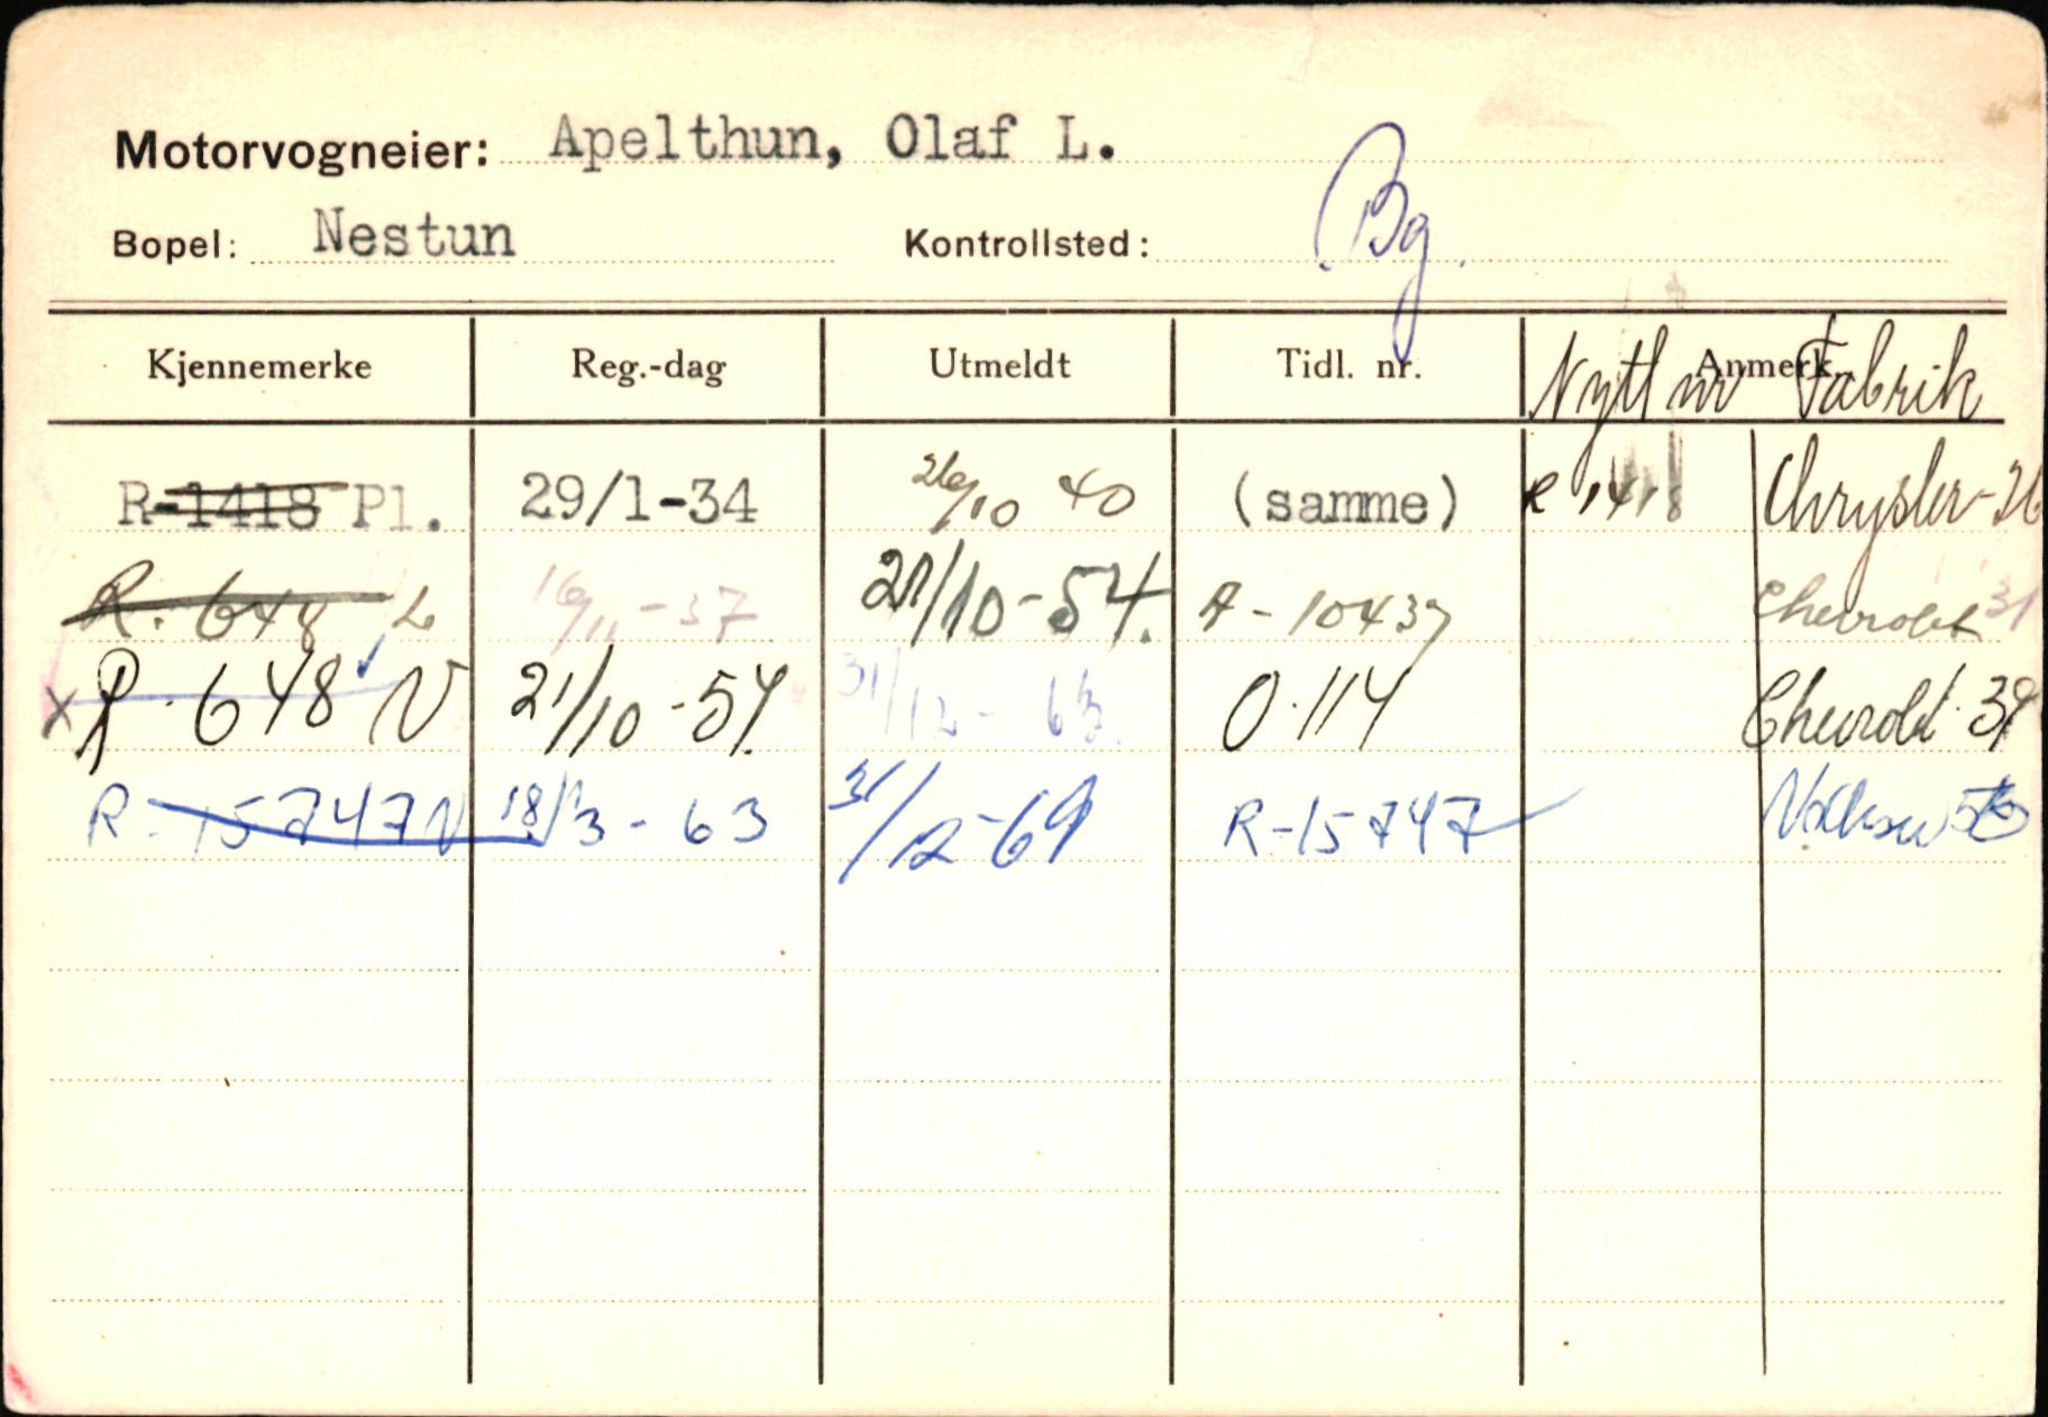 Motorvogneier: Apelthun, Olaf L.
Bopel: Nestun Kontrollsted: Bg.
Kjennemerke Reg.-dag Utmeldt Tidl. nr. Anmerk. Nytt nr Fabrik
R-1418 Pl. 29/1-34 26/10 40 (samme) R 1418 Chrysler-26
R. 648 L 16/11-37 21/10-54. A-10437 Chevrolet 31
x R-648 V 21/10-54. 31/12-63. O-114 Chevrolet 39
R-15747 V 18/3-63 31/12-69 R-15747